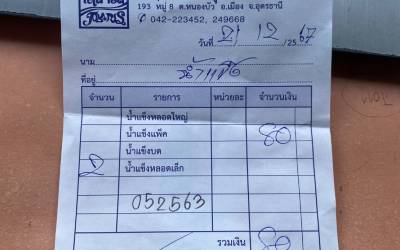 193 หมู่ 8 ต.หนองบัว อ.เมือง จ.อุดรธานี
✆ 042-223452, 249668
วันที่ 21/12/2567
นาม
ที่อยู่
จำนวน รายการ หน่วยละ จำนวนเงิน
น้ำแข็งหลอดใหญ่
น้ำแข็งแพ็ค 80
น้ำแข็งบด
2 น้ำแข็งหลอดเล็ก
052563
รวมเงิน 80